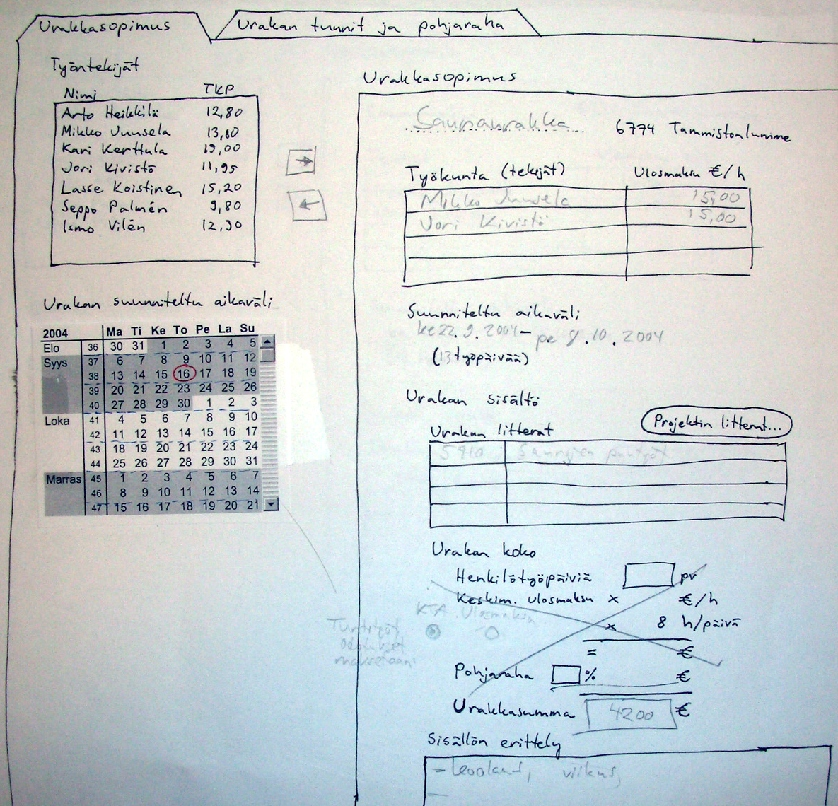 Urakkasopimus
Urakan tunnit ja pohjaraha
Työntekijät
Nimi TKP
Arto Heikkilä 12,80
Mikko Uusela 13,10
Kari Kerttula 19,00
Jori Kivistö 11,95
Lasse Koistinen 15,20
Seppo Palmén 9,80
Ismo Vilén 12,90
Urakan suunniteltu aikaväli
2004 Ma Ti Ke To Pe La Su
Elo 36 30 31 1 2 3 4 5
Syys 37 6 7 8 9 10 11 12
38 13 14 15 16 17 18 19
39 20 21 22 23 24 25 26
40 27 28 29 30 1 2 3
Loka 41 4 5 6 7 8 9 10
42 11 12 13 14 15 16 17
43 18 19 20 21 22 23 24
44 25 26 27 28 29 30 31
Marras 45 1 2 3 4 5 6 7
46 8 9 10 11 12 13 14
47 15 16 17 18 19 20 21
Urakkasopimus
Saunaurakka 6774 Tammistonlumme
Työkunta (tekijät) Ulosmaksu €/h
Mikko Uusela 15,00
Jori Kivistö 15,00
Suunniteltu aikaväli
ke 22.9.2004 – pe 8.10.2004
(13 työpäivää)
Urakan sisältö
Projektin litterat...
Urakan litterat
Urakan koko
Henkilötyöpäiviä pv
Keskim. ulosmaksu x €/h
x 8 h/päivä
= €
KTA Ulosmaksu
Pohjaraha % €
Urakkasumma 4200 €
Sisällön erittely